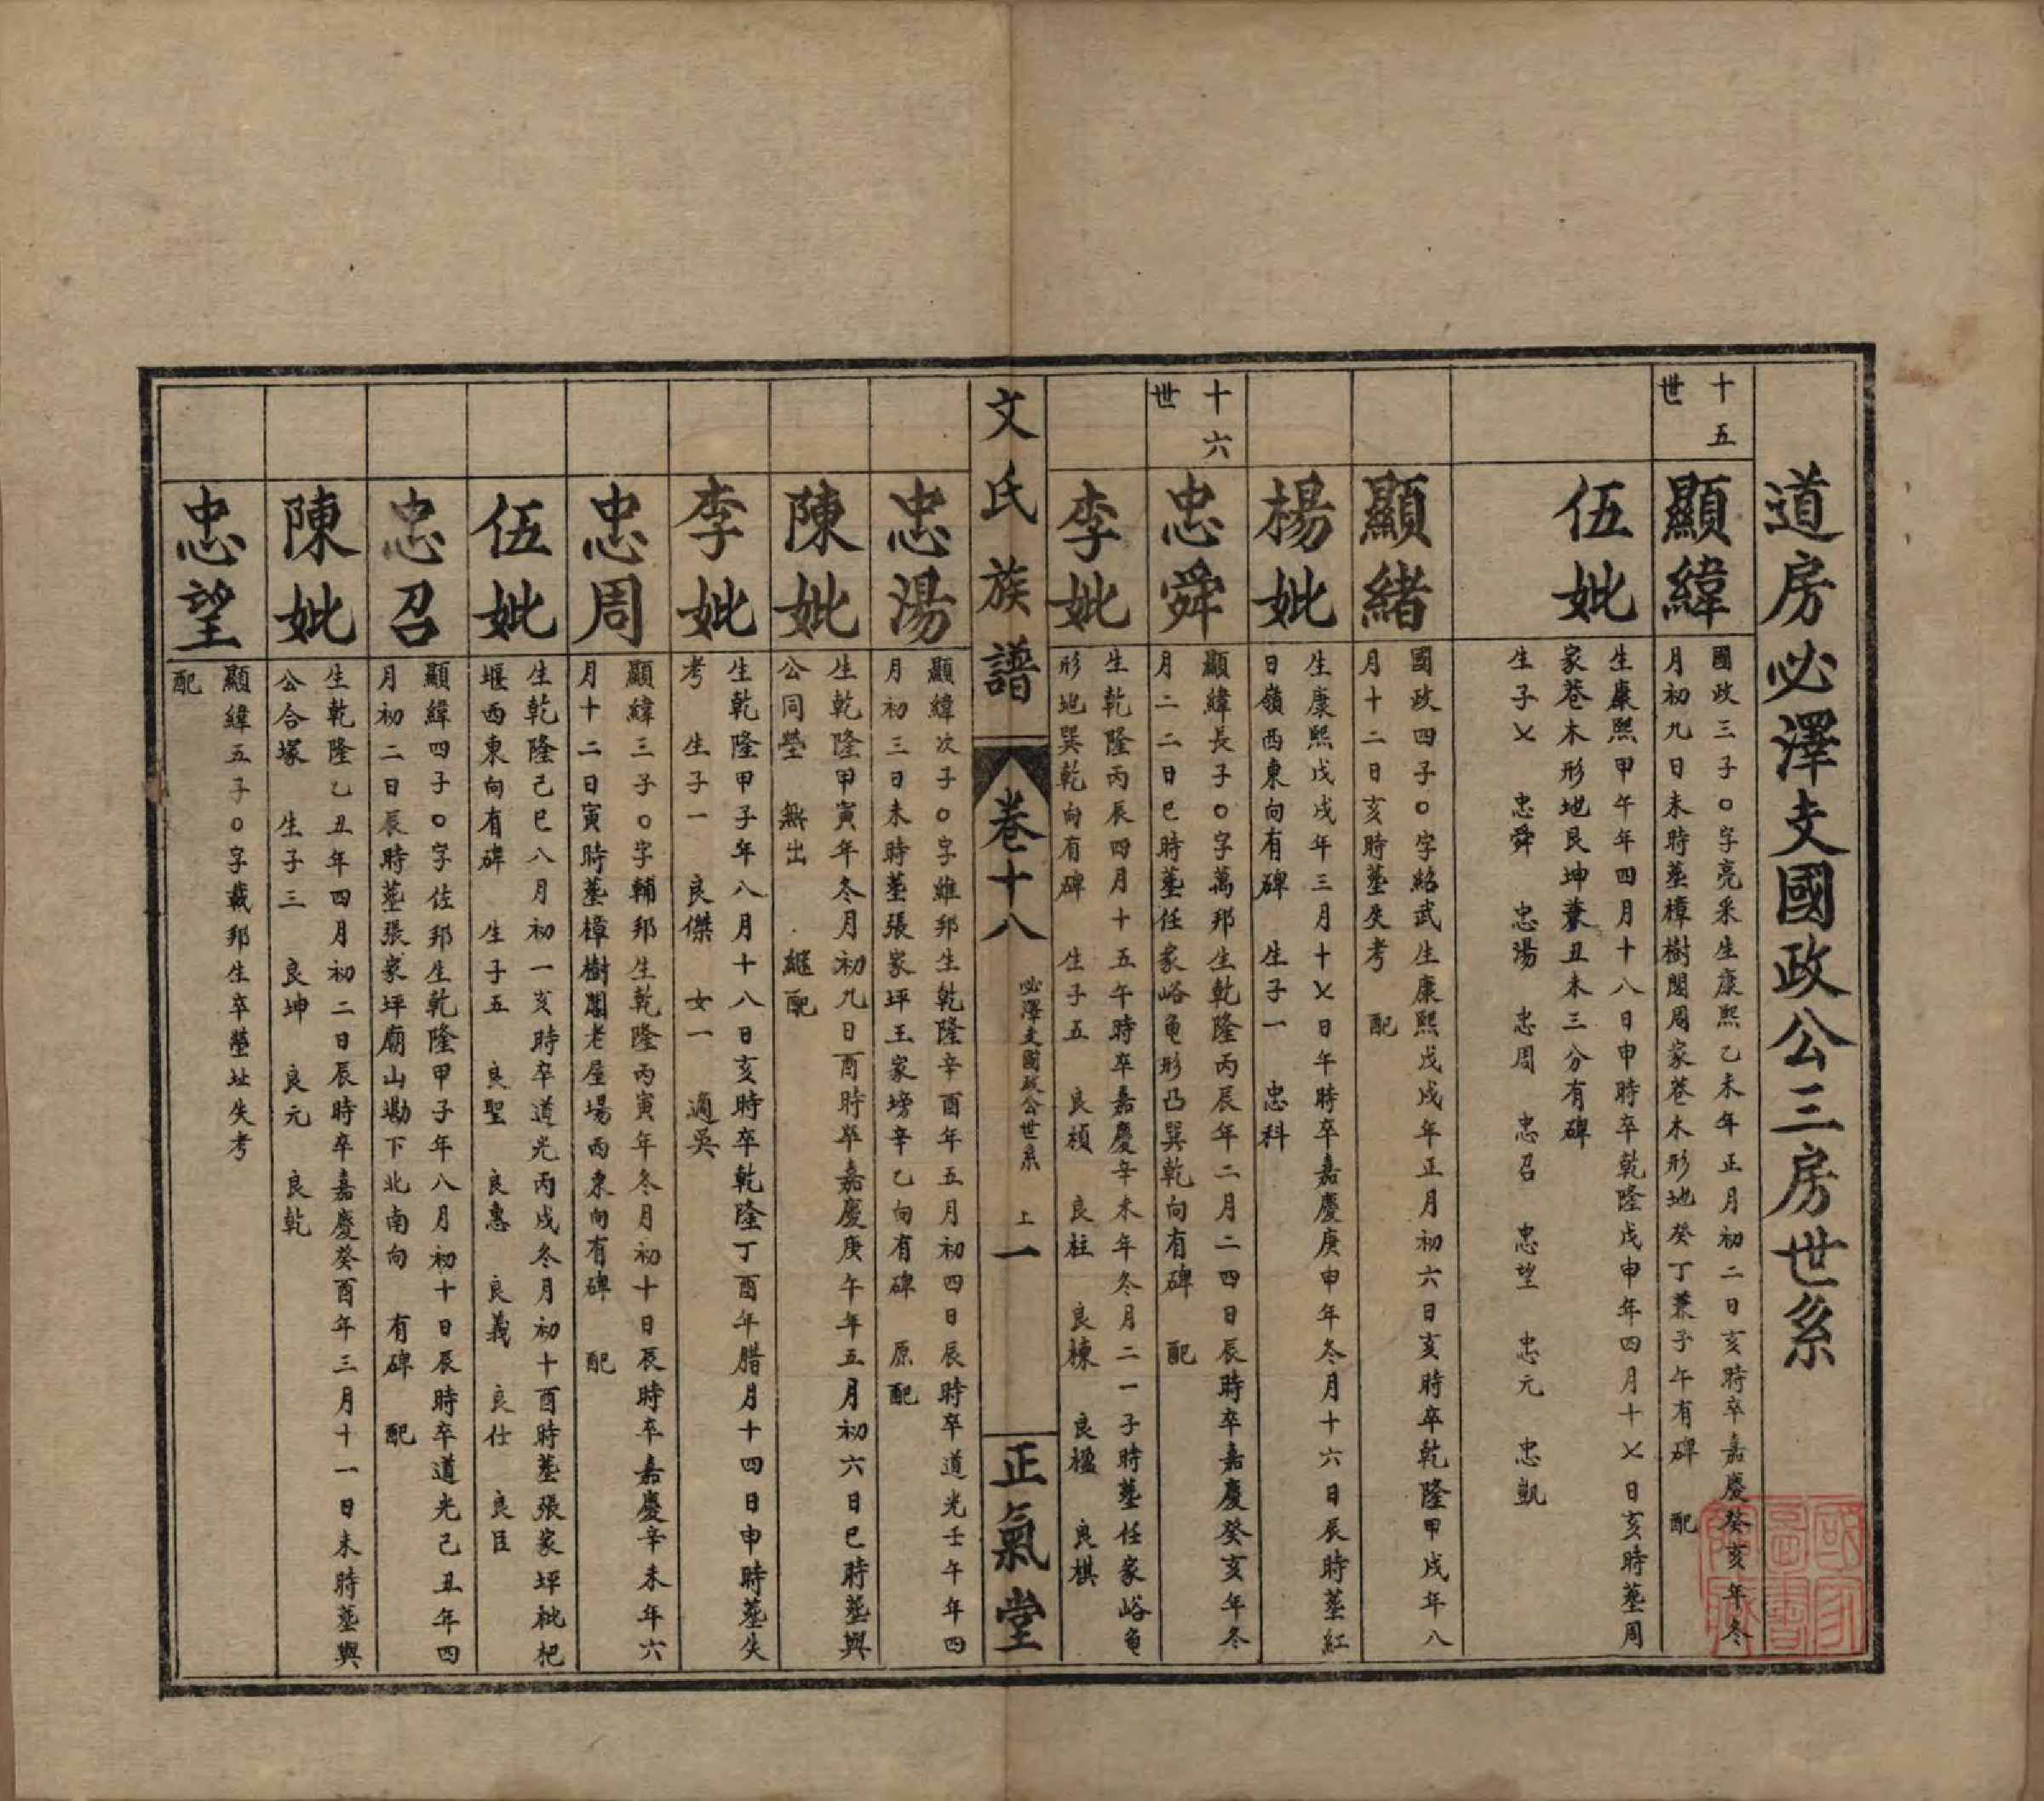 道房必澤支國政公三房世系
十五
世
顯緯
國政三子○字亮采生康熙乙未年正月初二日亥時卒嘉慶癸亥年冬
月初九日未時塟樟樹閣周家巷木形地癸丁兼子午有碑 配
伍妣
生康熙甲午年四月十八日申時卒乾隆戊申年四月十七日亥時塟周
家巷木形地艮坤兼丑未三分有碑
生子七 忠舜 忠湯 忠周 忠召 忠望 忠元 忠凱
顯緒
國政四子○字紹武生康熙戊戌年正月初六日亥時卒乾隆甲戌年八
月十二日亥時塟失考 配
楊妣
生康熙戊戌年三月十七日午時卒嘉慶庚申年冬月十六日辰時塟紅
日嶺西東向有碑 生子一 忠科
十六
世
忠舜
顯緯長子○字萬邦生乾隆丙辰年二月二四日辰時卒嘉慶癸亥年冬
月二二日巳時塟任家峪龟形凸巽乾向有碑 配
李妣
生乾隆丙辰四月十五午時卒嘉慶辛未年冬月二一子時塟任家峪龟
形地巽乾向有碑 生子五 良楨 良柱 良棟 良楹 良棋
文氏族譜
卷十八
必澤支國政公世系 上 一
正氣堂
忠湯
顯緯次子○字維邦生乾隆辛酉年五月初四日辰時卒道光壬午年四
月初三日未時塟張家坪王家塝辛乙向有碑 原配
陳妣
生乾隆甲寅年冬月初九日酉時卒嘉慶庚午年五月初六日巳時塟與
公同塋 無出 繼配
李妣
生乾隆甲子年八月十八日亥時卒乾隆丁酉年腊月十四日申時塟失
考 生子一 良傑 女一 適吳
忠周
顯緯三子○字輔邦生乾隆丙寅年冬月初十日辰時卒嘉慶辛未年六
月十二日寅時塟樟樹閣老屋場西東向有碑 配
伍妣
生乾隆己巳八月初一亥時卒道光丙戌冬月初十酉時塟張家坪枇杷
堰西東向有碑 生子五 良聖 良惠 良義 良仕 良臣
忠召
顯緯四子○字佐邦生乾隆甲子年八月初十日辰時卒道光己丑年四
月初二日辰時塟張家坪廟山墈下北南向 有碑 配
陳妣
生乾隆乙丑年四月初二日辰時卒嘉慶癸酉年三月十一日未時塟與
公合塚 生子三 良坤 良元 良乾
忠望
顯緯五子○字載邦生卒塋址失考
配